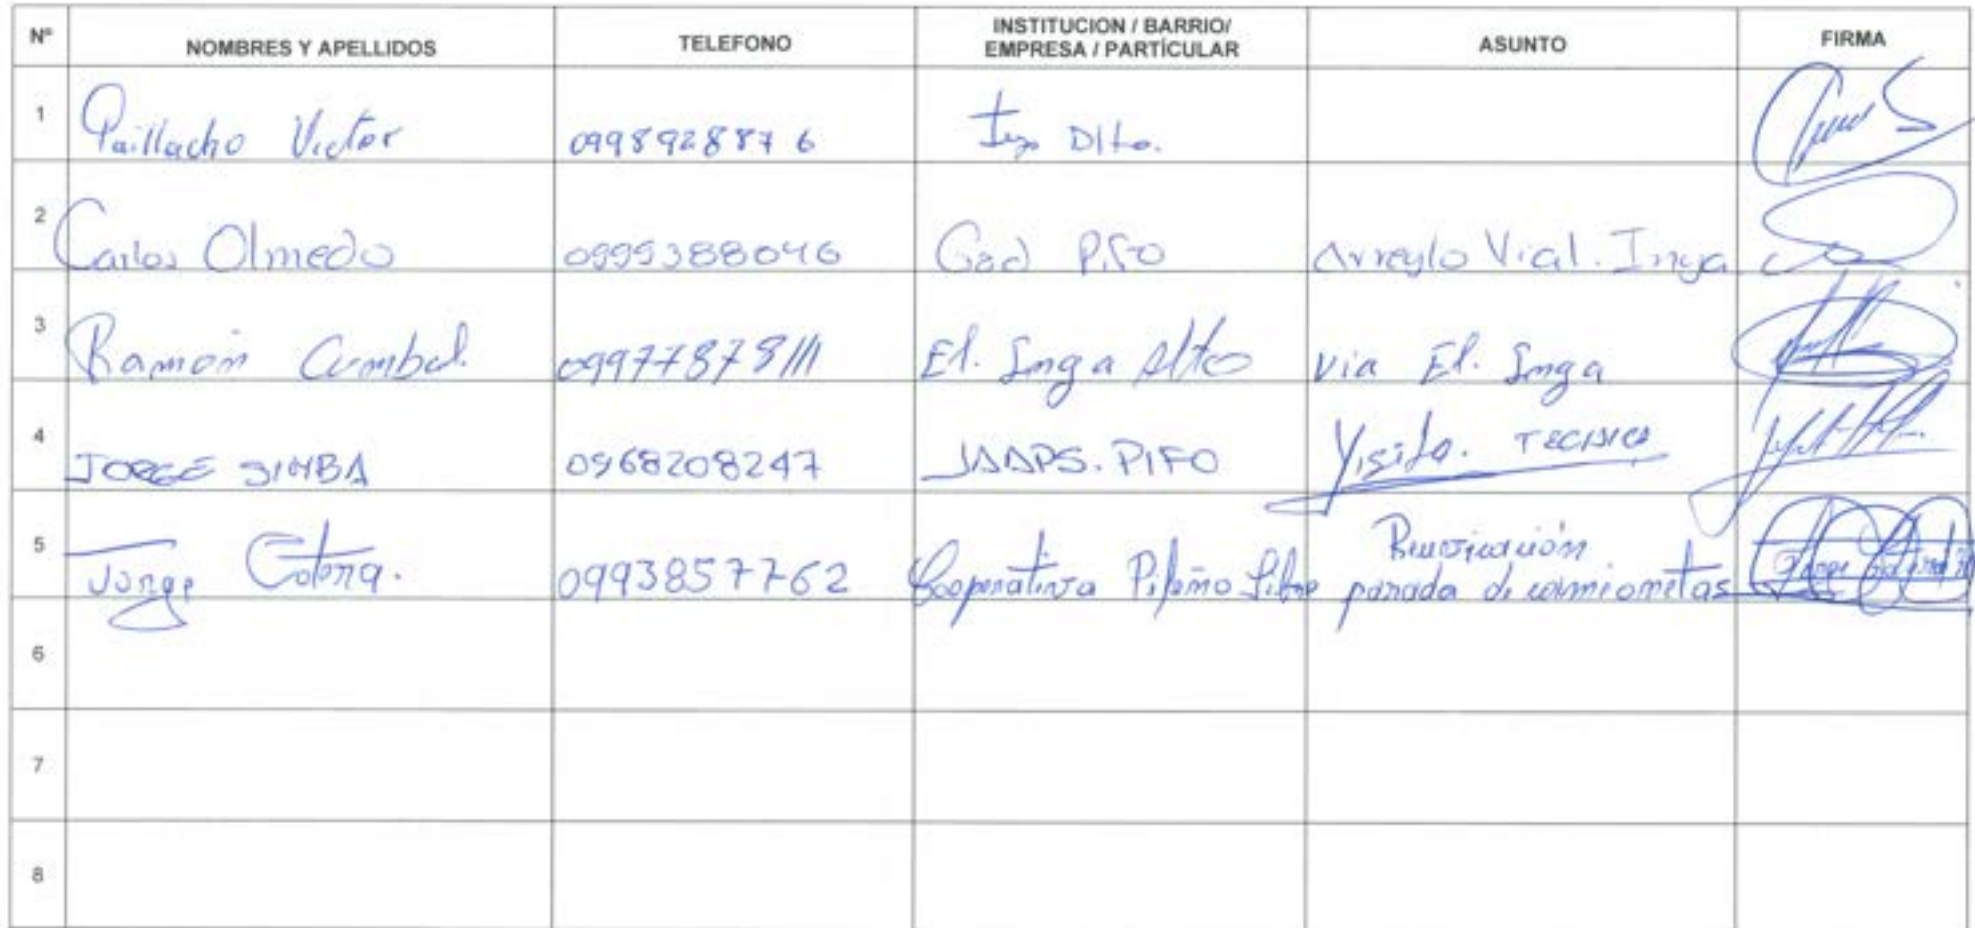 Nº NOMBRES Y APELLIDOS TELEFONO INSTITUCION / BARRIO/ EMPRESA / PARTÍCULAR ASUNTO FIRMA
1 Paillacho Victor 0998928876
2 Carlos Olmedo 0999388046 Gad Pifo Arreglo Vial. Inga
3 Ramón Cumbal. 0997787811 El. Inga Alto Via El. Inga
4 JORGE SIMBA 0968208247 JAAPS. PIFO Visita. TECNICA
5 Jorge 0993857762 Cooperativa Pifeño Libre parada de camionetas
6
7
8